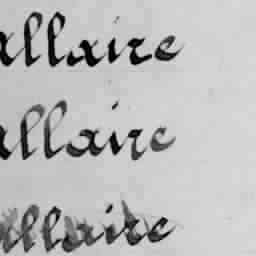 allaire
allaire
allaire